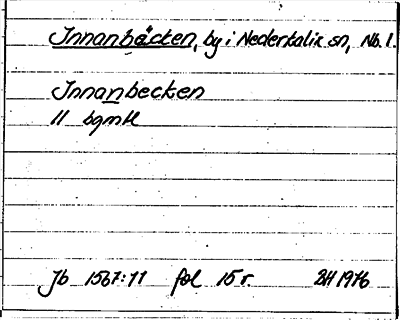 Innanbäcken, by i Nederkalix sn, Nb. l.
Innanbecken
11 bgmtl
Jb 1567:11 fol 15 r. BH 1976